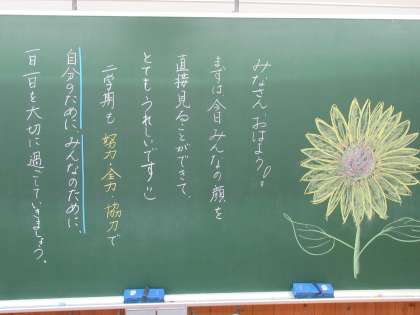 みなさん、おはよう!
まずは今日みんなの顔を
直接見ることができて、
とてもうれしいです☺
二学期も 努力・全力・協力で
自分のために、みんなのために、
一日一日を大切に過ごしていきましょう。